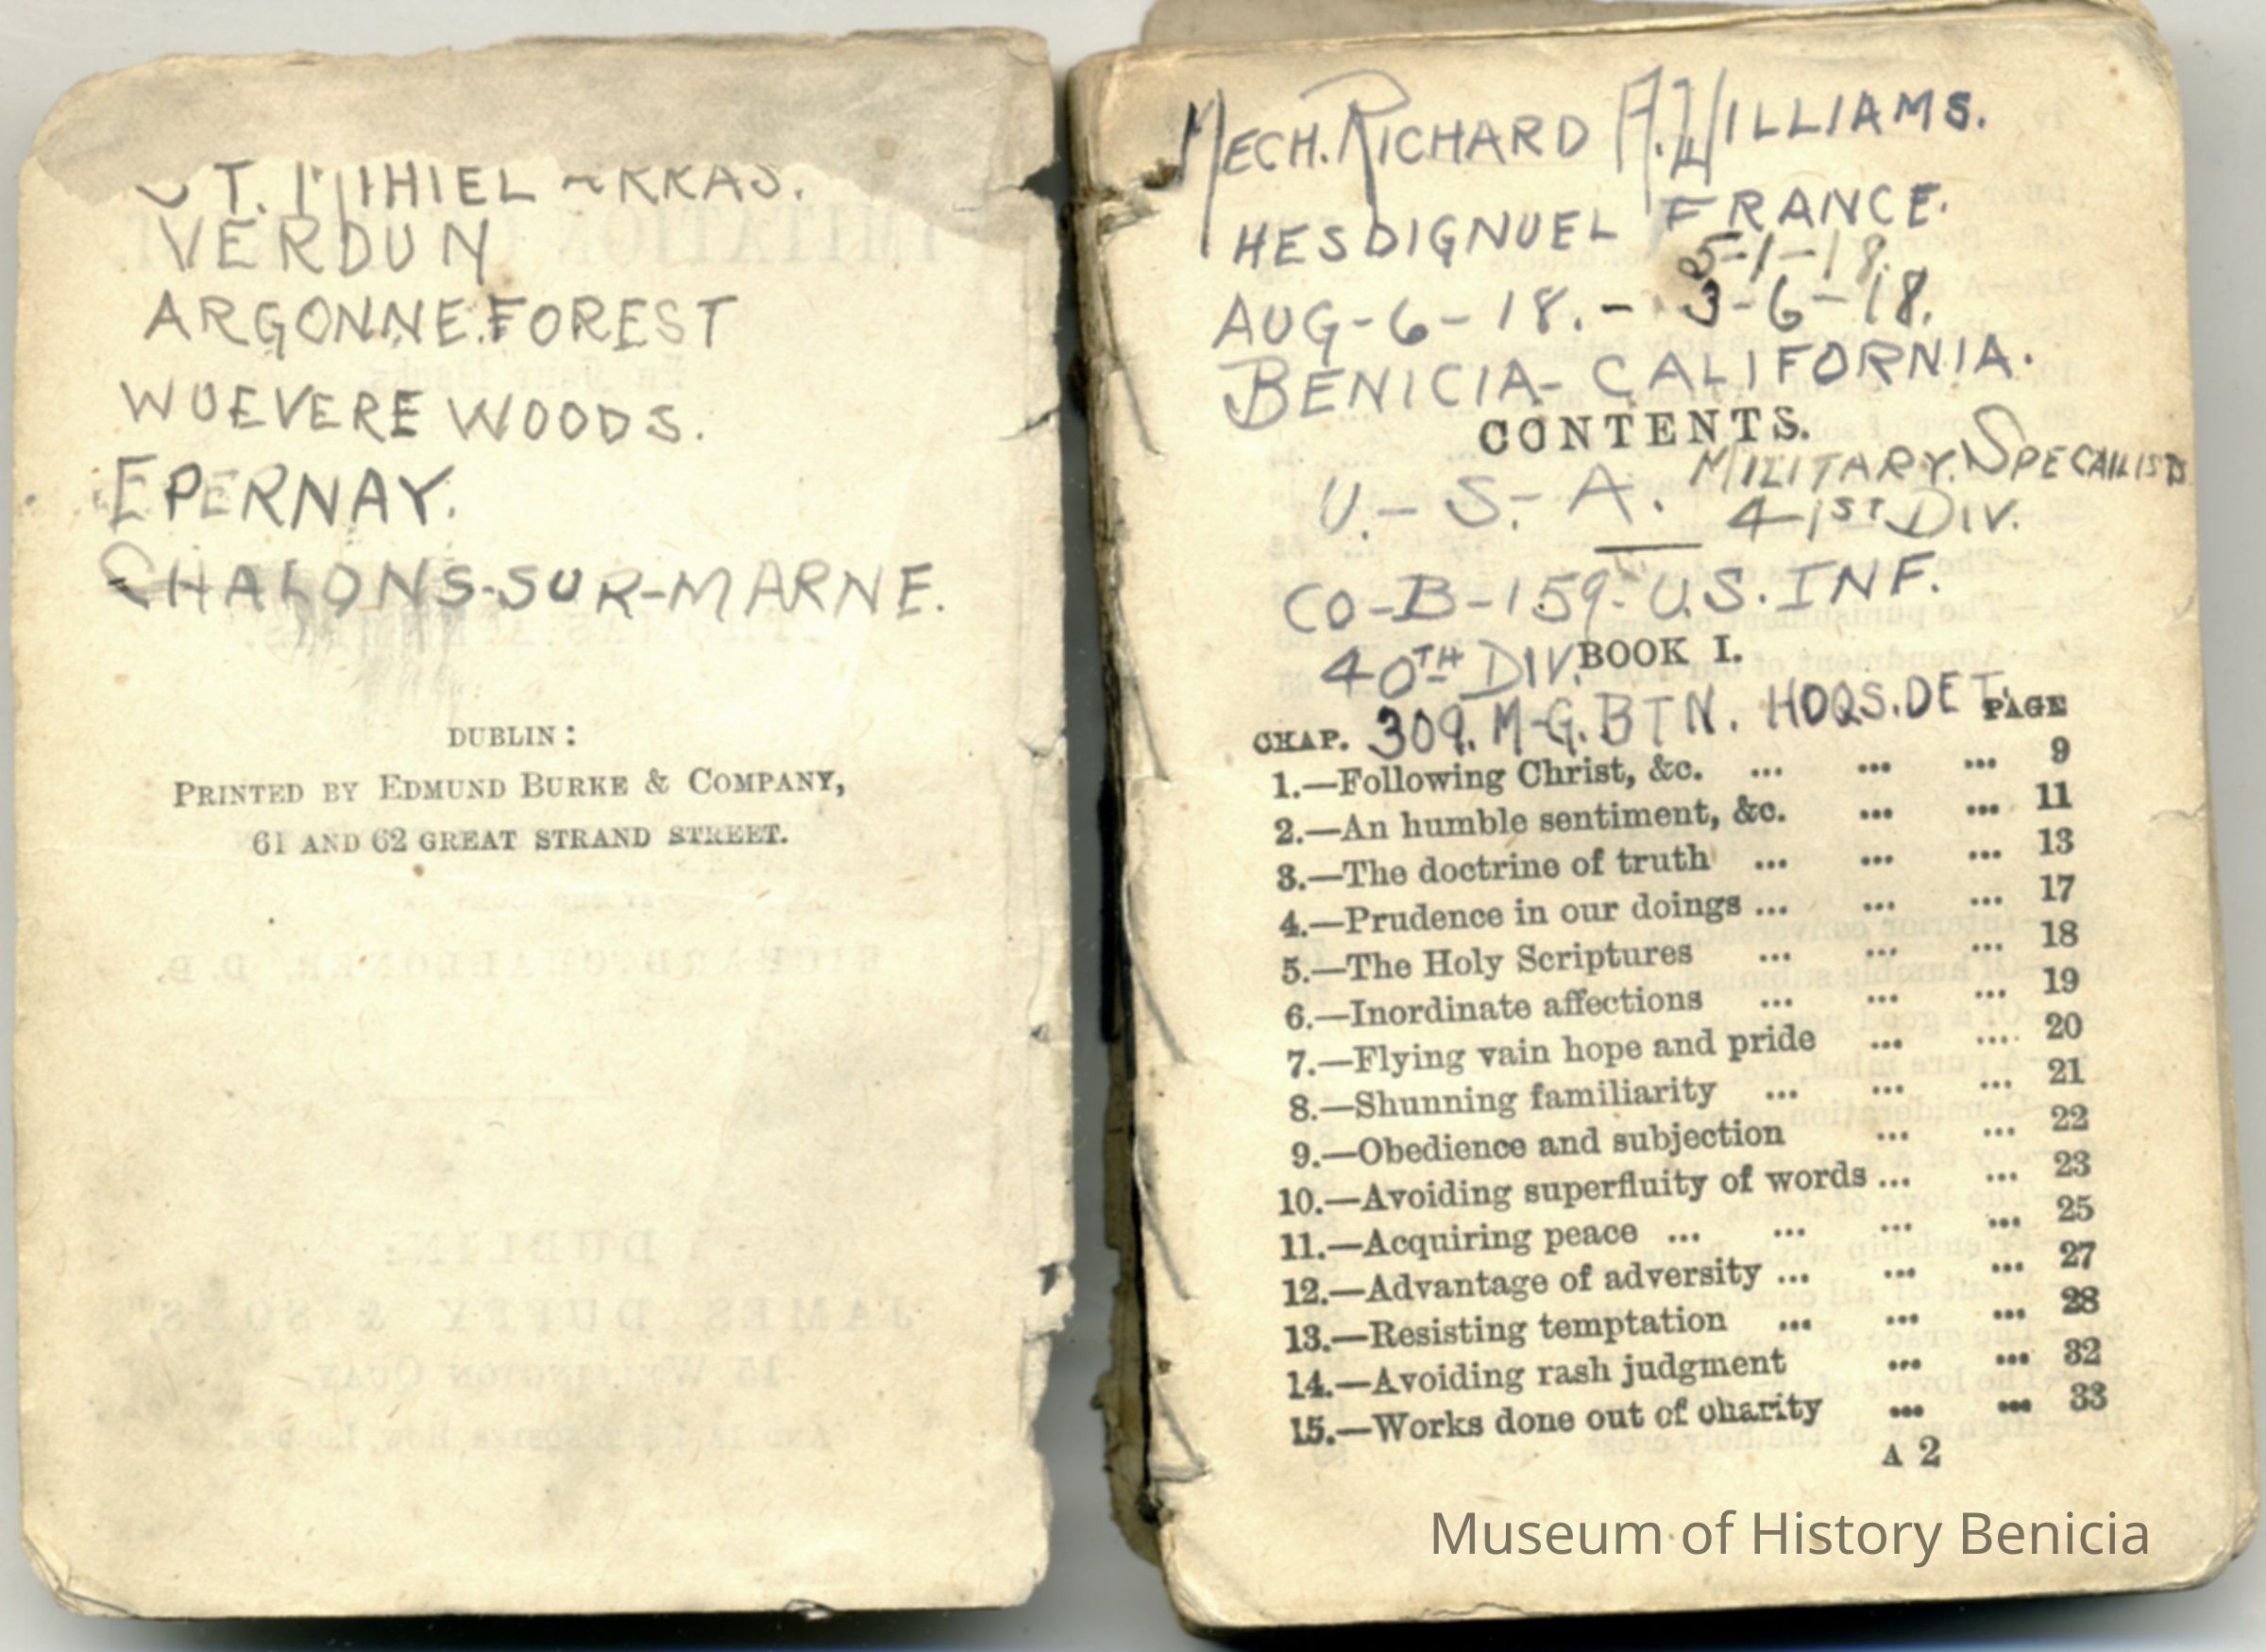 ST. MIHIEL - ARRAS.
VERDUN
ARGONNE.FOREST
WUEVERE WOODS.
EPERNAY.
CHALONS-SUR-MARNE.
DUBLIN:
PRINTED BY EDMUND BURKE & COMPANY,
61 AND 62 GREAT STRAND STREET.
MECH. RICHARD A. WILLIAMS.
HESDIGNUEL FRANCE.
5-1-18.
AUG-6-18. - 3-6-18.
BENICIA- CALIFORNIA.
CONTENTS.
U.- S.- A. MILITARY. SPECAILISTS
41ST DIV.
CO-B-159-U.S. INF.
40TH DIV. BOOK I.
CHAP. 309. M-G. BTN. HDQS. DET. PAGE
1.—Following Christ, &c. ... ... ... 9
2.—An humble sentiment, &c. ... ... 11
3.—The doctrine of truth ... ... ... 13
4.—Prudence in our doings ... ... ... 17
5.—The Holy Scriptures ... ... ... 18
6.—Inordinate affections ... ... ... 19
7.—Flying vain hope and pride ... ... 20
8.—Shunning familiarity ... ... ... 21
9.—Obedience and subjection ... ... 22
10.—Avoiding superfluity of words ... ... 23
11.—Acquiring peace ... ... ... ... 25
12.—Advantage of adversity ... ... ... 27
13.—Resisting temptation ... ... ... 28
14.—Avoiding rash judgment ... ... 32
15.—Works done out of charity ... ... 33
A 2
Museum of History Benicia